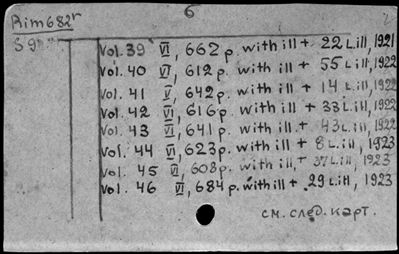 6
Rim682r
Vol. 39 VI, 662p. with ill + 22 L.ill, 1921
Vol. 40 VI, 612p. with ill + 55 L.ill, 1922
Vol. 41 VI, 642p. with ill + 14 L.ill, 1922
Vol. 42 VI, 616p. with ill + 33 L.ill, 1922
Vol. 43 VI, 641p. with ill. + 43 L.ill, 1922
Vol. 44 VI, 623p. with ill + 8 L.ill, 1923
Vol. 45 VI, 608p. with ill, + 37 L.ill, 1923
Vol. 46 VI, 684p. with ill + 29 L.ill, 1923
см. след. карт.